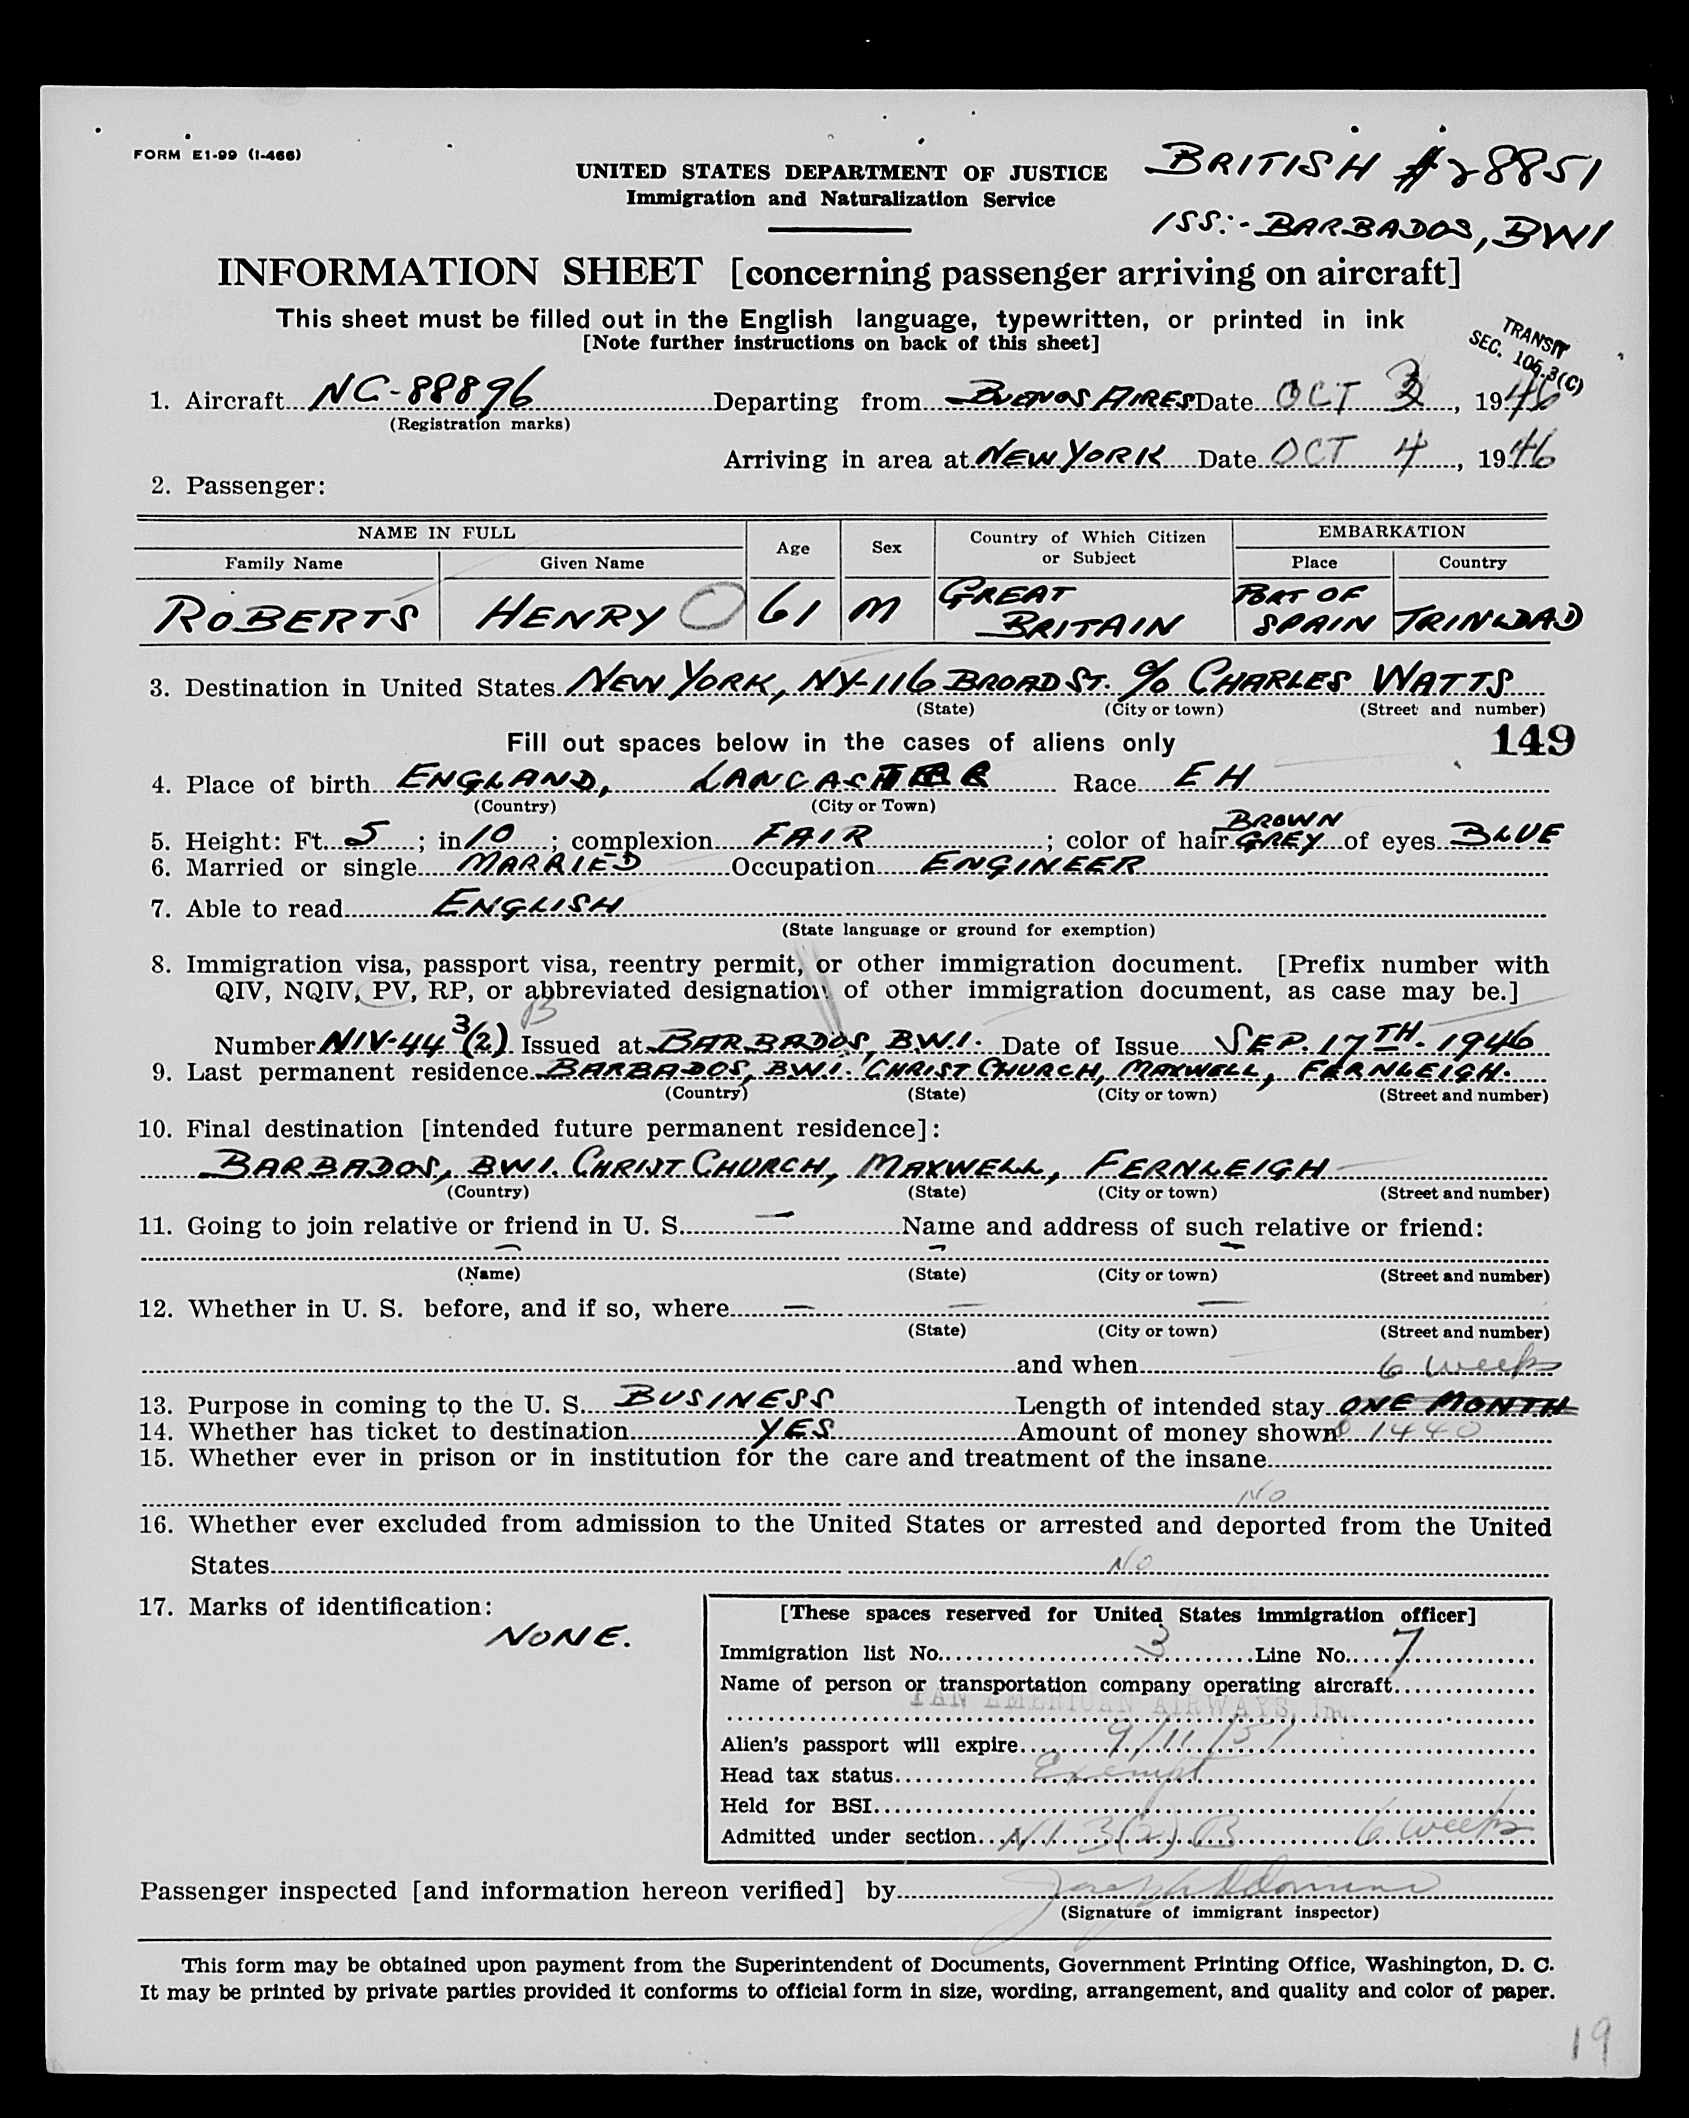 FORM E1-99 (I-466)
BRITISH #28851
UNITED STATES DEPARTMENT OF JUSTICE
Immigration and Naturalization Service
ISS:- BARBADOS, BWI
INFORMATION SHEET [concerning passenger arriving on aircraft]
This sheet must be filled out in the English language, typewritten, or printed in ink
[Note further instructions on back of this sheet]
TRANSIT
SEC. 106.3(C)
1. Aircraft NC-88896 Departing from BUENOS AIRES Date OCT 3, 1946
(Registration marks)
Arriving in area at NEW YORK Date OCT 4, 1946
2. Passenger:
NAME IN FULL Age Sex Country of Which Citizen or Subject EMBARKATION
Family Name Given Name Place Country
ROBERTS HENRY O 61 M GREAT BRITAIN PORT OF SPAIN TRINIDAD
3. Destination in United States NEW YORK, NY-116 BROAD ST. c/o CHARLES WATTS
(State) (City or town) (Street and number)
Fill out spaces below in the cases of aliens only 149
4. Place of birth ENGLAND, LANCASTER Race EH
(Country) (City or Town)
BROWN
5. Height: Ft. 5; in 10; complexion FAIR; color of hair GREY of eyes BLUE
6. Married or single MARRIED Occupation ENGINEER
7. Able to read ENGLISH
(State language or ground for exemption)
8. Immigration visa, passport visa, reentry permit, or other immigration document. [Prefix number with
QIV, NQIV, PV, RP, or abbreviated designation of other immigration document, as case may be.]
B
Number NIV-44 3(2) Issued at BARBADOS, BWI. Date of Issue SEP. 17TH. 1946
9. Last permanent residence BARBADOS, BWI. CHRIST CHURCH, MAXWELL, FERNLEIGH.
(Country) (State) (City or town) (Street and number)
10. Final destination [intended future permanent residence]:
BARBADOS, BWI. CHRIST CHURCH, MAXWELL, FERNLEIGH —
(Country) (State) (City or town) (Street and number)
11. Going to join relative or friend in U. S. — Name and address of such relative or friend:
— — —
(Name) (State) (City or town) (Street and number)
12. Whether in U. S. before, and if so, where — — —
(State) (City or town) (Street and number)
and when 6 weeks
13. Purpose in coming to the U. S. BUSINESS Length of intended stay ONE MONTH
14. Whether has ticket to destination YES Amount of money shown $1440
15. Whether ever in prison or in institution for the care and treatment of the insane
No
16. Whether ever excluded from admission to the United States or arrested and deported from the United
States No
17. Marks of identification:
NONE.
[These spaces reserved for United States immigration officer]
Immigration list No. 3 Line No. 7
Name of person or transportation company operating aircraft
PAN AMERICAN AIRWAYS, Inc.
Alien's passport will expire 9/11/51
Head tax status Exempt
Held for BSI
Admitted under section 3(2) B 6 weeks
Passenger inspected [and information hereon verified] by
(Signature of immigrant inspector)
This form may be obtained upon payment from the Superintendent of Documents, Government Printing Office, Washington, D. C.
It may be printed by private parties provided it conforms to official form in size, wording, arrangement, and quality and color of paper.
19